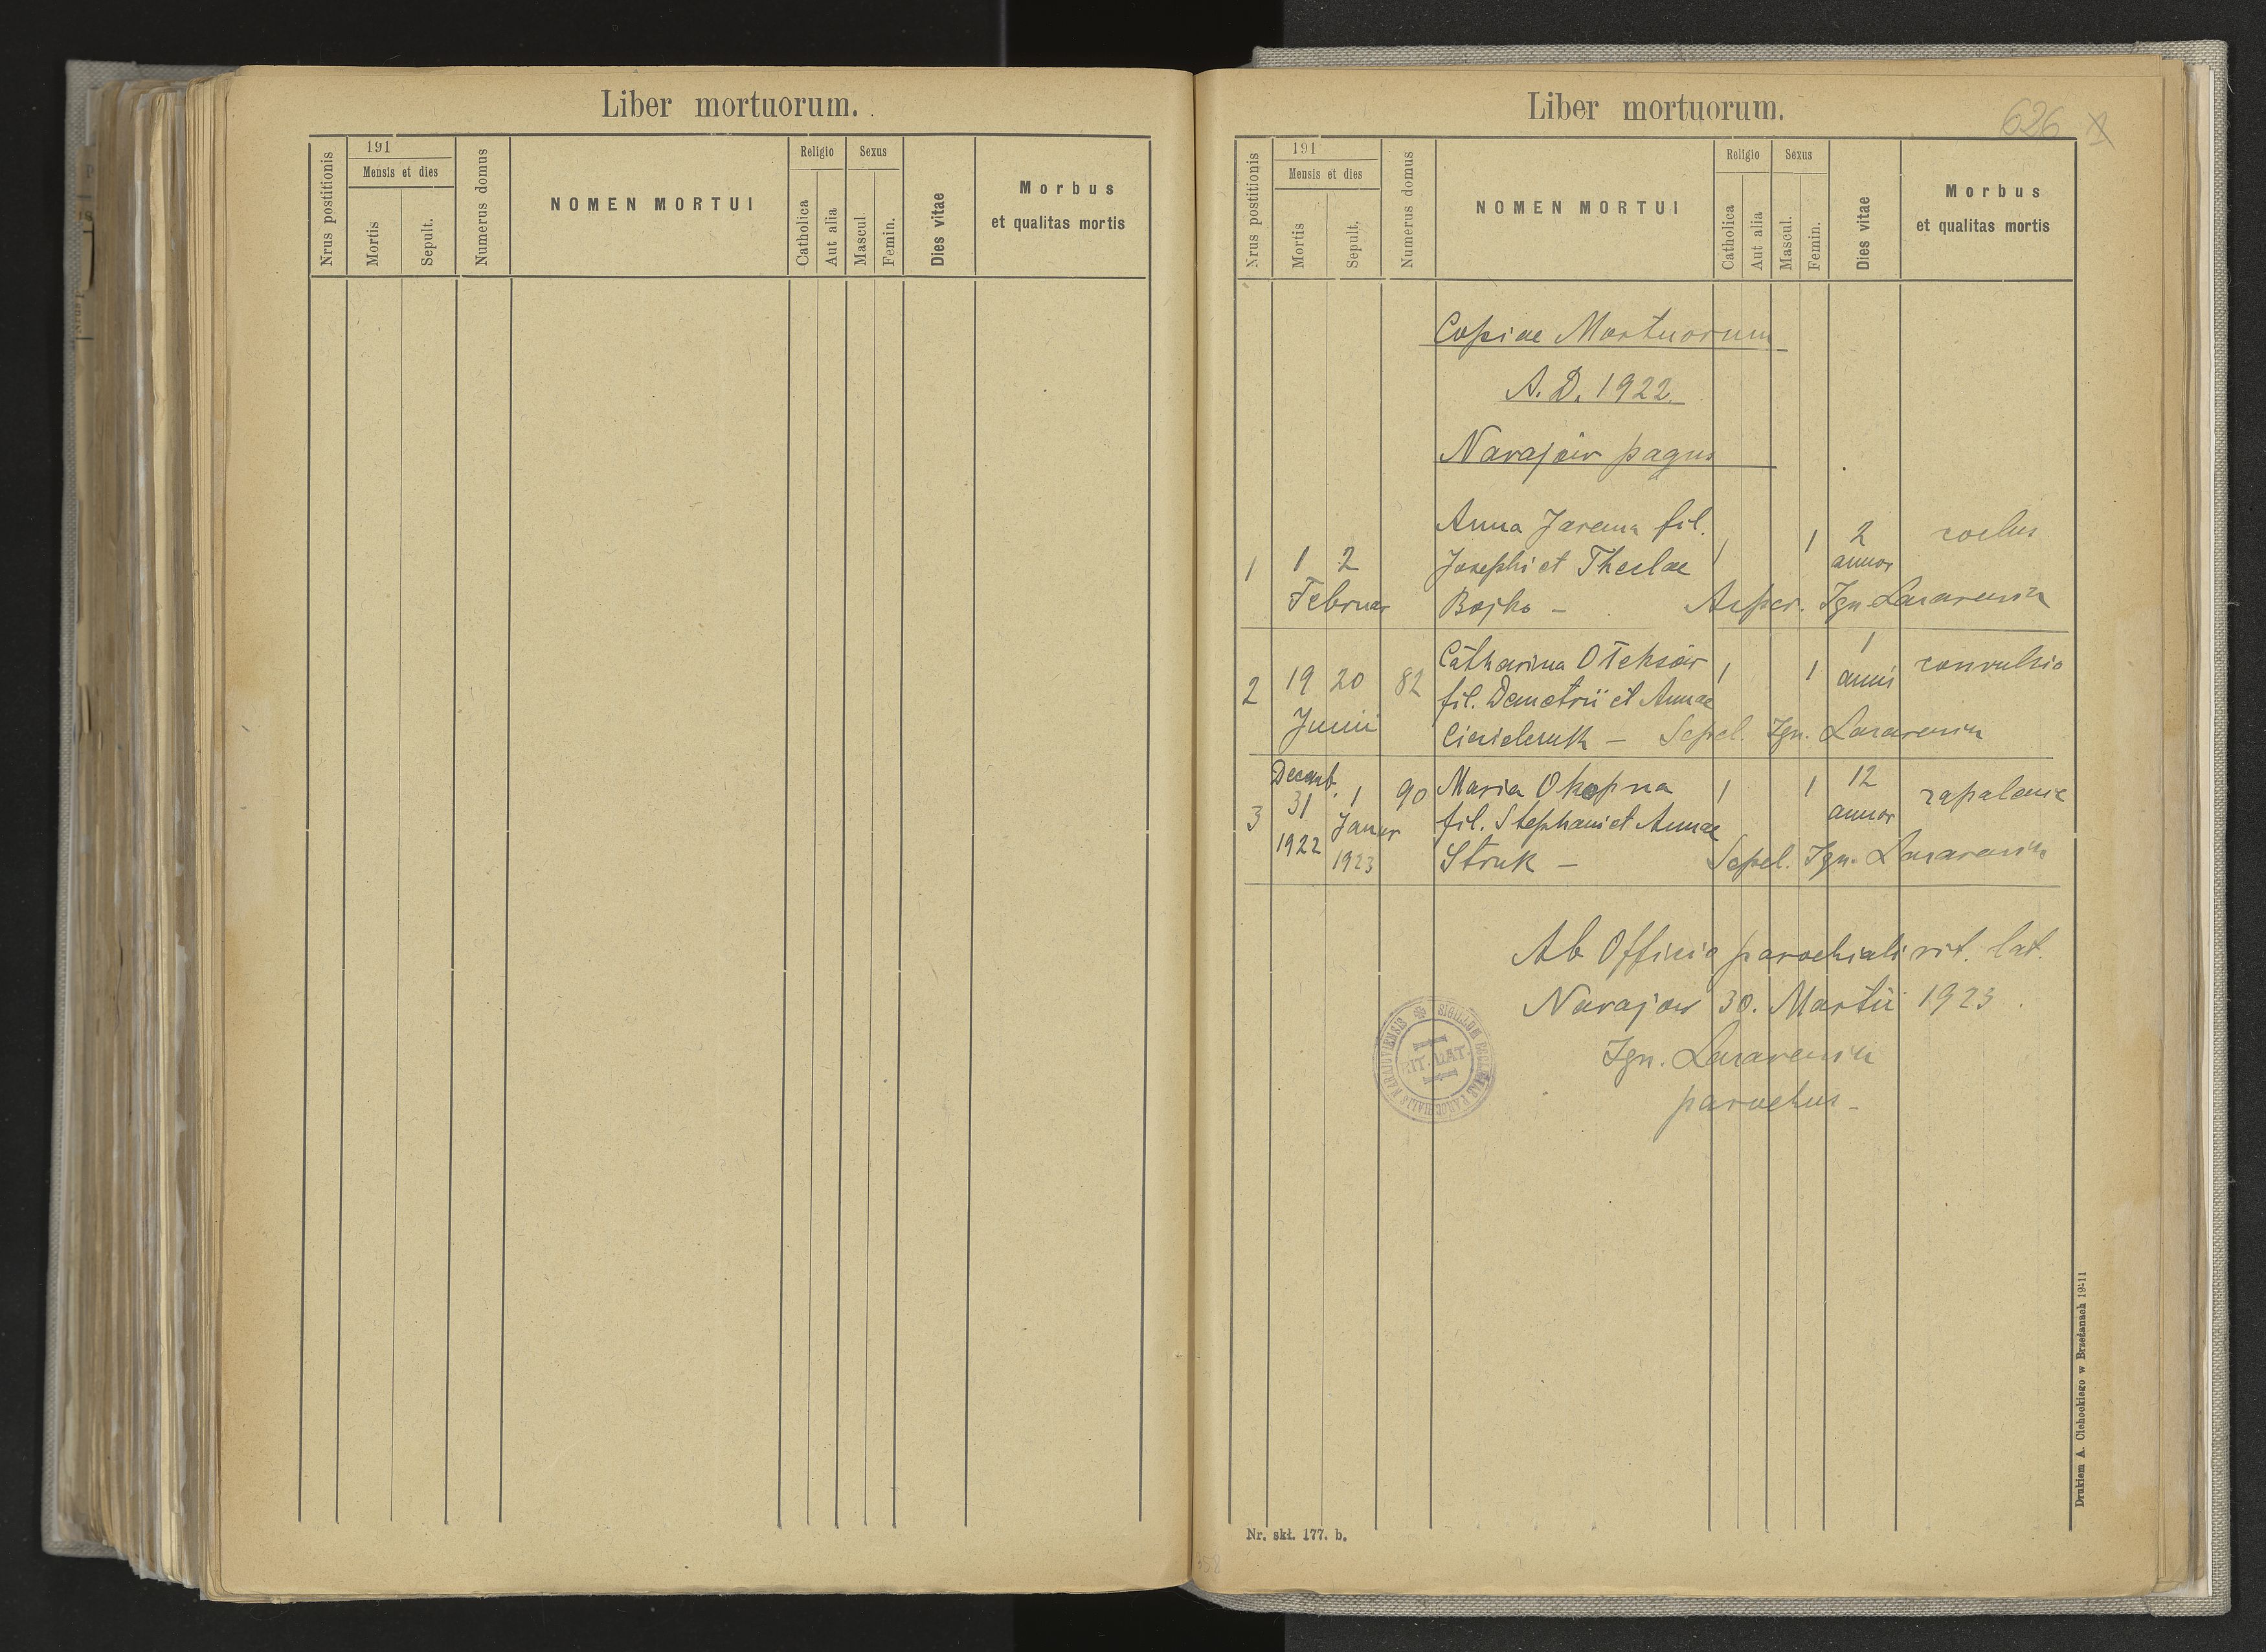 Liber mortuorum.
Nrus postitionis
191
Mensis et dies
Mortis
Sepult.
Numerus domus
NOMEN MORTUI
Religio
Catholica
Aut alia
Sexus
Mascul.
Femin.
Dies vitae
Morbus
et qualitas mortis
Liber mortuorum.
626
Nrus postitionis
191
Mensis et dies
Mortis
Sepult.
Numerus domus
NOMEN MORTUI
Religio
Catholica
Aut alia
Sexus
Mascul.
Femin.
Dies vitae
Morbus
et qualitas mortis
Copiae Mortuorum
A. D. 1922.
Narajów pagus
Anna Jarema fil.
1 1 2 Josephi et Theclae 1 1 2 annor
Februar Bojko – Asper. Ign.
Catharina Oleksów
2 19 20 82 fil. Demetrii et Annae 1 1 1 anni convulsio
Junii – Sepel. Ign.
Decemb.
3 31 1 90 Maria Okopna 1 1 12 annor zapalenie
1922 Januar 1923 fil. Stephani et Annae
Struk – Sepel. Ign.
Ab Officio parochiali rit. lat.
Narajow 30. Martii 1923.
Ign.
parochus –
SIGILLUM ECCLESIAE PAROCHIALIS NARAJOVIENSIS
RIT. LAT.
Nr. skł. 177. b.
Drukiem A. Cichockiego w Brzeżanach 19-11